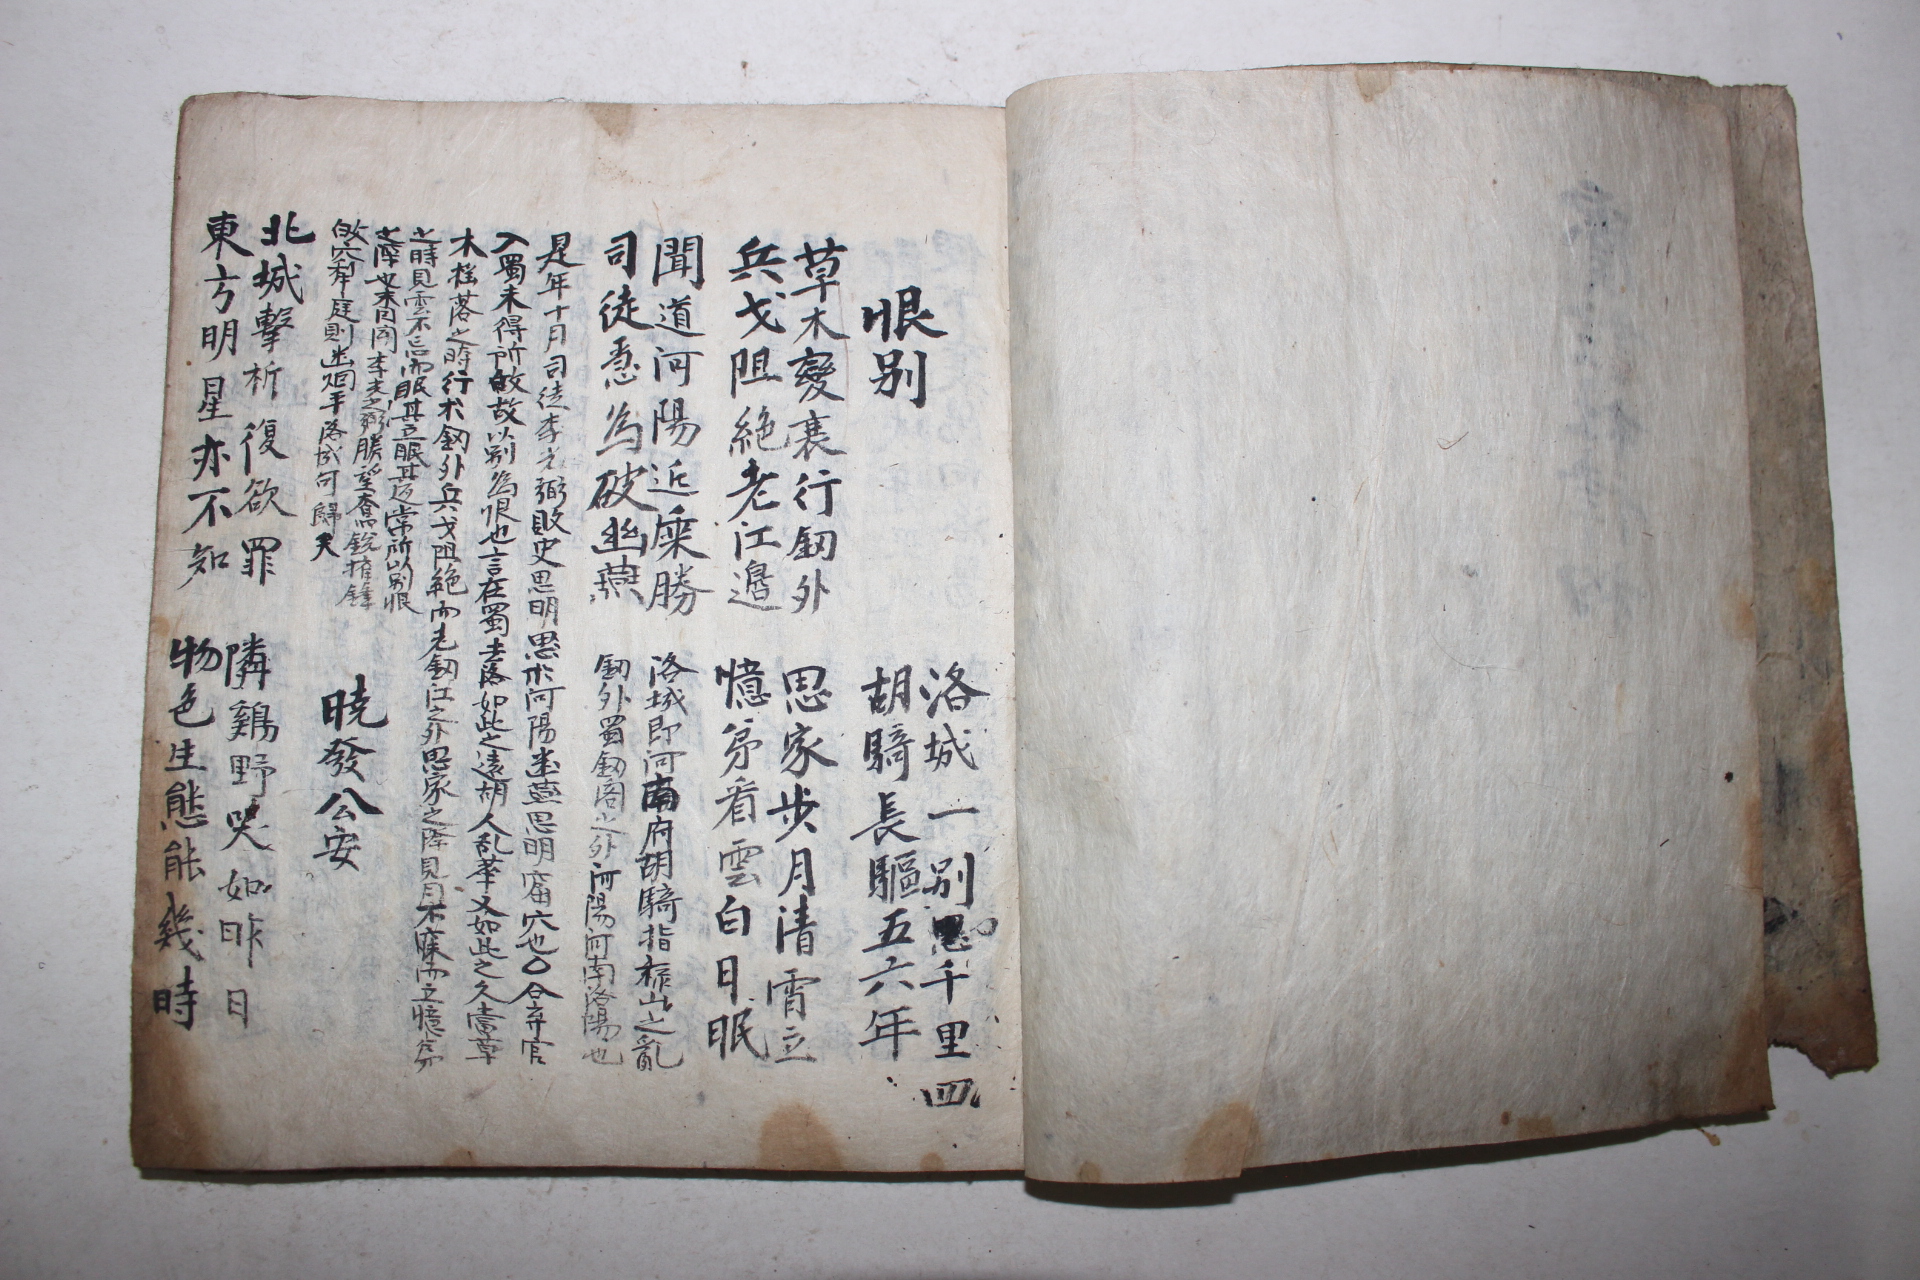 恨別
洛城一別千里四
胡騎長驅五六年
草木變衰行釰外
兵戈阻絶老江邉
思家步月清霄立
憶弟看雲白日眠
聞道河陽近乘勝
司徒急為破幽燕
洛城即河南府胡騎指祿山之亂
釰外蜀釰阁之外河陽河南洛陽也
是年十月司徒李光弼敗史思明思於河陽幽燕思明窟穴也〇合弃官
入蜀未得所故故以別為恨也言在蜀去洛如此之遠胡人乱華又如此之久當草
木搖落之時行於釰外兵戈阻絶而老釰江之外思家之際見月不寐而立憶弟
之時見雲不忘而眠其立眠其反常所以別恨
之際也某日聞李光弼勝望奮銳摧鋒
故穴犁庭則幽燕平洛城可歸矣
曉發公安
北城擊柝復欲罪
東方明星亦不知
隣鷄野哭如昨日
物色生態能幾時